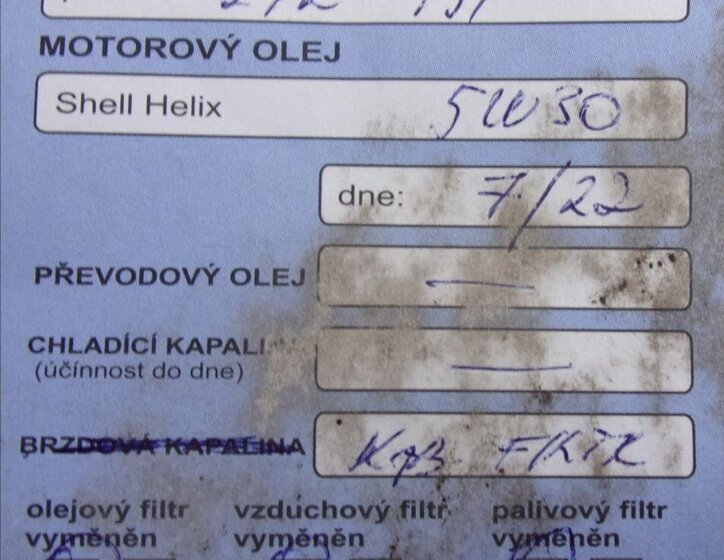 MOTOROVÝ OLEJ
Shell Helix 5W30
dne: 7/22
PŘEVODOVÝ OLEJ —
CHLADÍCÍ
(účinnost do dne) —
BRZDOVÁ KAPALINA
olejový filtr vzduchový filtr palivový filtr
vyměněn vyměněn vyměněn